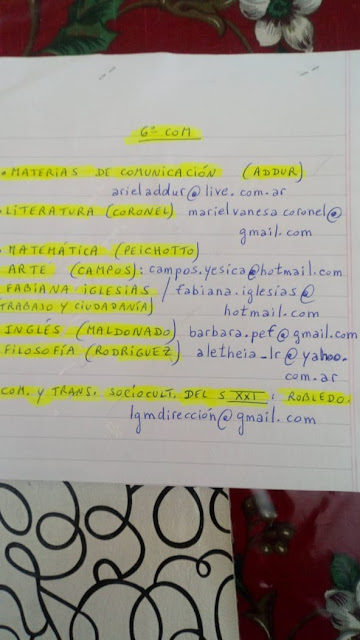 6º COM
• MATERIAS DE COMUNICACIÓN (ADDUR)
arieladdur@live.com.ar
• LITERATURA (CORONEL) marielvanesacoronel@
gmail.com
• MATEMÁTICA (PEICHOTTO)
ARTE (CAMPOS): campos.yesica@hotmail.com
FABIANA IGLESIAS / fabiana.iglesias@
TRABAJO Y CIUDADANÍA) hotmail.com
INGLÉS (MALDONADO) barbara.pef@gmail.com
FILOSOFÍA (RODRÍGUEZ) aletheia_lr@yahoo.
com.ar
COM. Y TRANS. SOCIOCULT. DEL S XXI: ROBLEDO.
lgmdirección@gmail.com